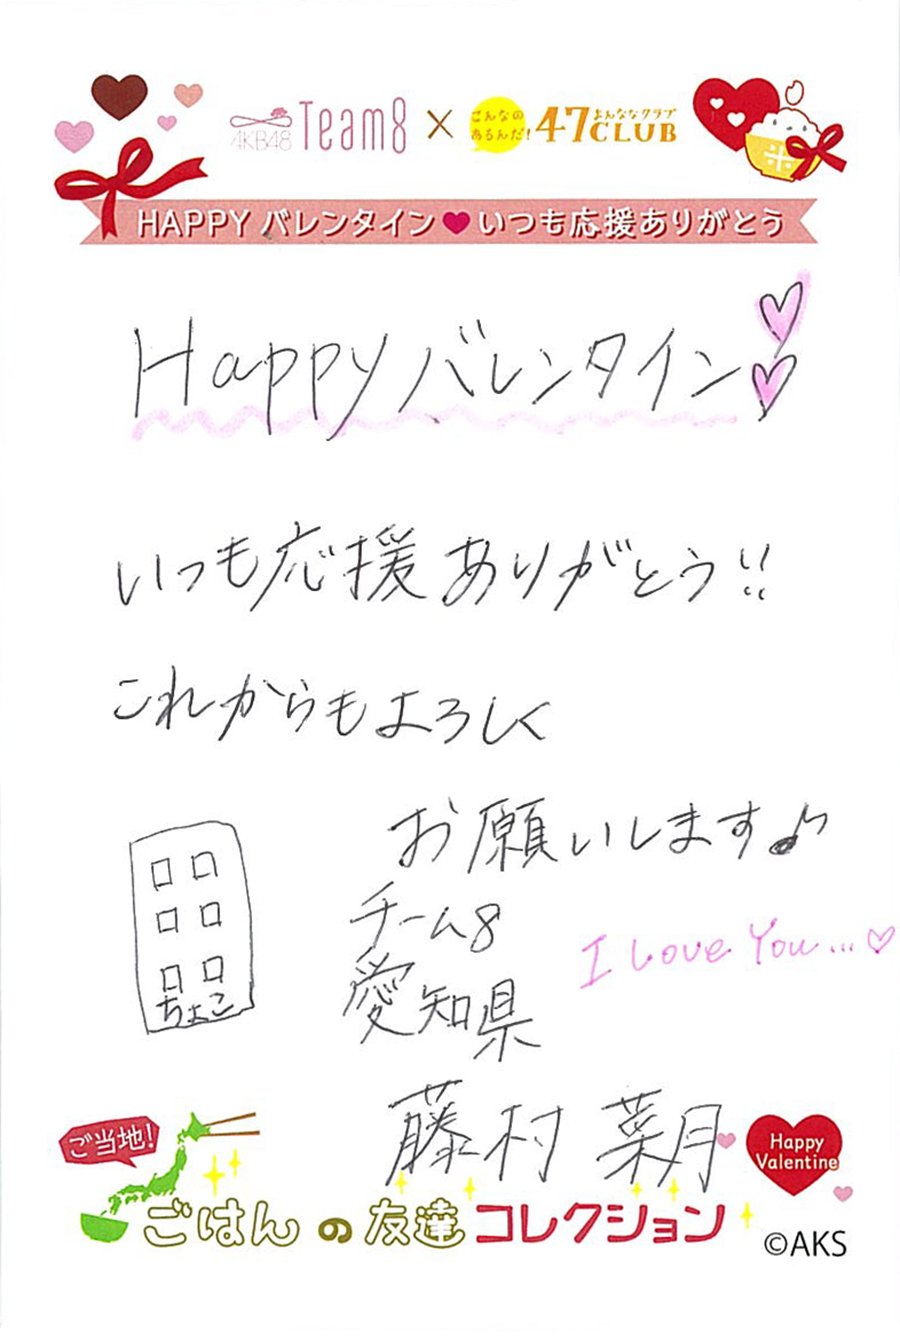 AKB48 Team8 × こんなの あるんだ! 47CLUB よんななクラブ
米
HAPPY バレンタイン♥いつも応援ありがとう
Happy バレンタイン♡♡
いつも応援ありがとう!!
これからもよろしく
お願いします♪
チーム8
愛知県
I Love You...♡
ちょこ
藤村 菜月
ご当地!
Happy
Valentine
ごはんの友達コレクション
©AKS